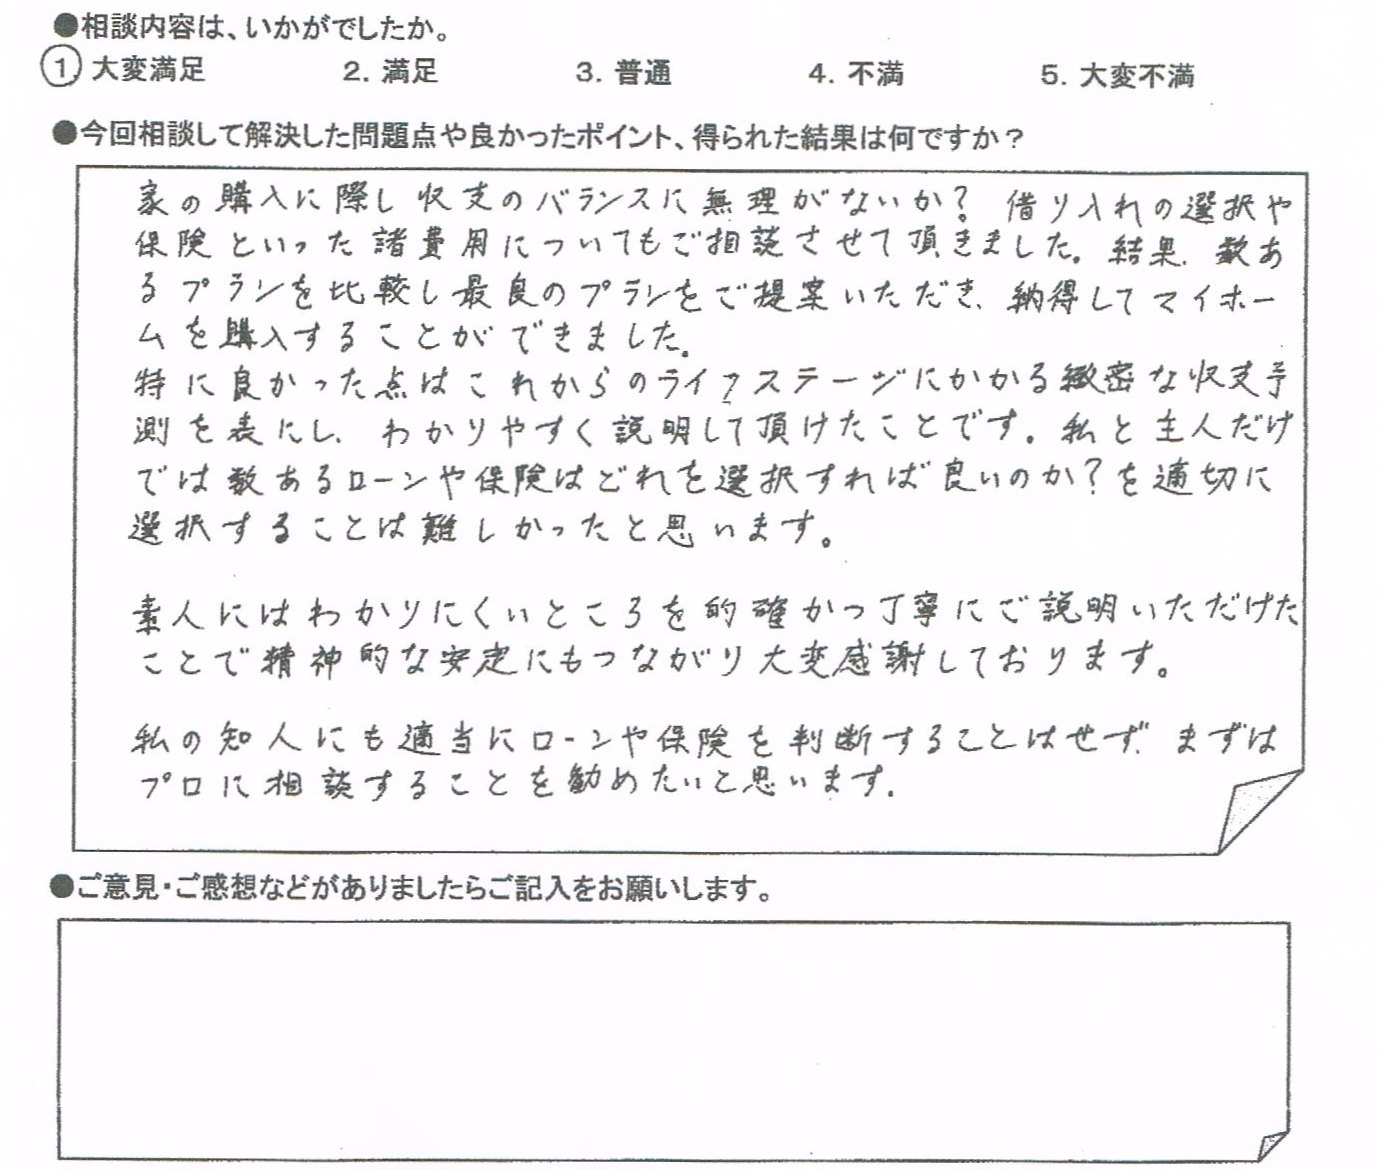 ●相談内容は、いかがでしたか。
1 大変満足 2. 満足 3. 普通 4. 不満 5. 大変不満
●今回相談して解決した問題点や良かったポイント、得られた結果は何ですか？
家の購入に際し収支のバランスに無理がないか？ 借り入れの選択や
保険といった諸費用についてもご相談させて頂きました。結果、数あ
るプランを比較し最良のプランをご提案いただき、納得してマイホー
ムを購入することができました。
特に良かった点はこれからのライフステージにかかる緻密な収支予
測を表にし、わかりやすく説明して頂けたことです。私と主人だけ
では数あるローンや保険はどれを選択すれば良いのか？を適切に
選択することは難しかったと思います。
素人にはわかりにくいところを的確かつ丁寧にご説明いただけた
ことで精神的な安定にもつながり大変感謝しております。
私の知人にも適当にローンや保険を判断することはせず、まずは
プロに相談することを勧めたいと思います。
●ご意見・ご感想などがありましたらご記入をお願いします。